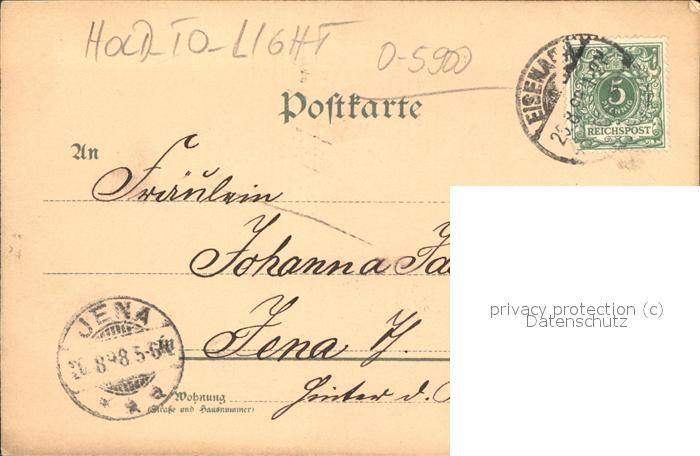 HOLD TO LIGHT
0-5900
Postkarte
EISENACH
26.8.98
5
REICHSPOST
An
Fräulein
Johanna
Jena
JENA
26.8.98.5-6N
a
Wohnung
(Straße und Hausnummer)
Hinter d.
privacy protection (c)
Datenschutz